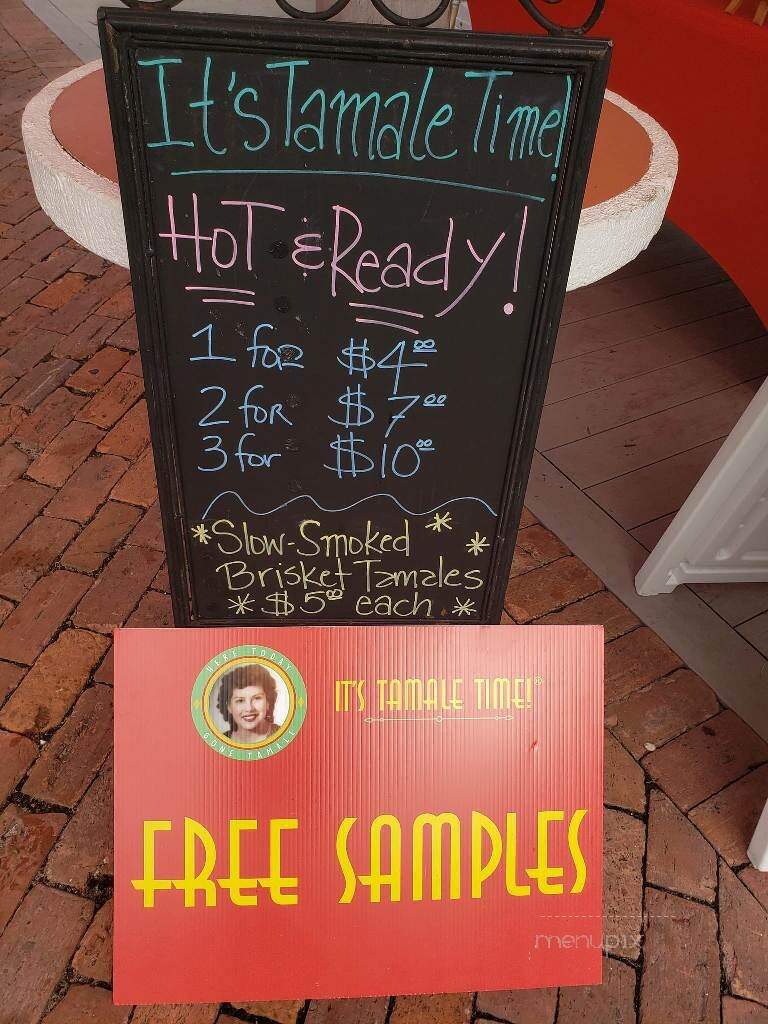 It's Tamale Time!
HOT & Ready!
1 for $4.00
2 for $7.00
3 for $10.00
*Slow-Smoked *
Brisket Tamales *
* $5.00 each *
HERE TODAY
GONE TAMALE
IT'S TAMALE TIME!®
FREE SAMPLES
menupix